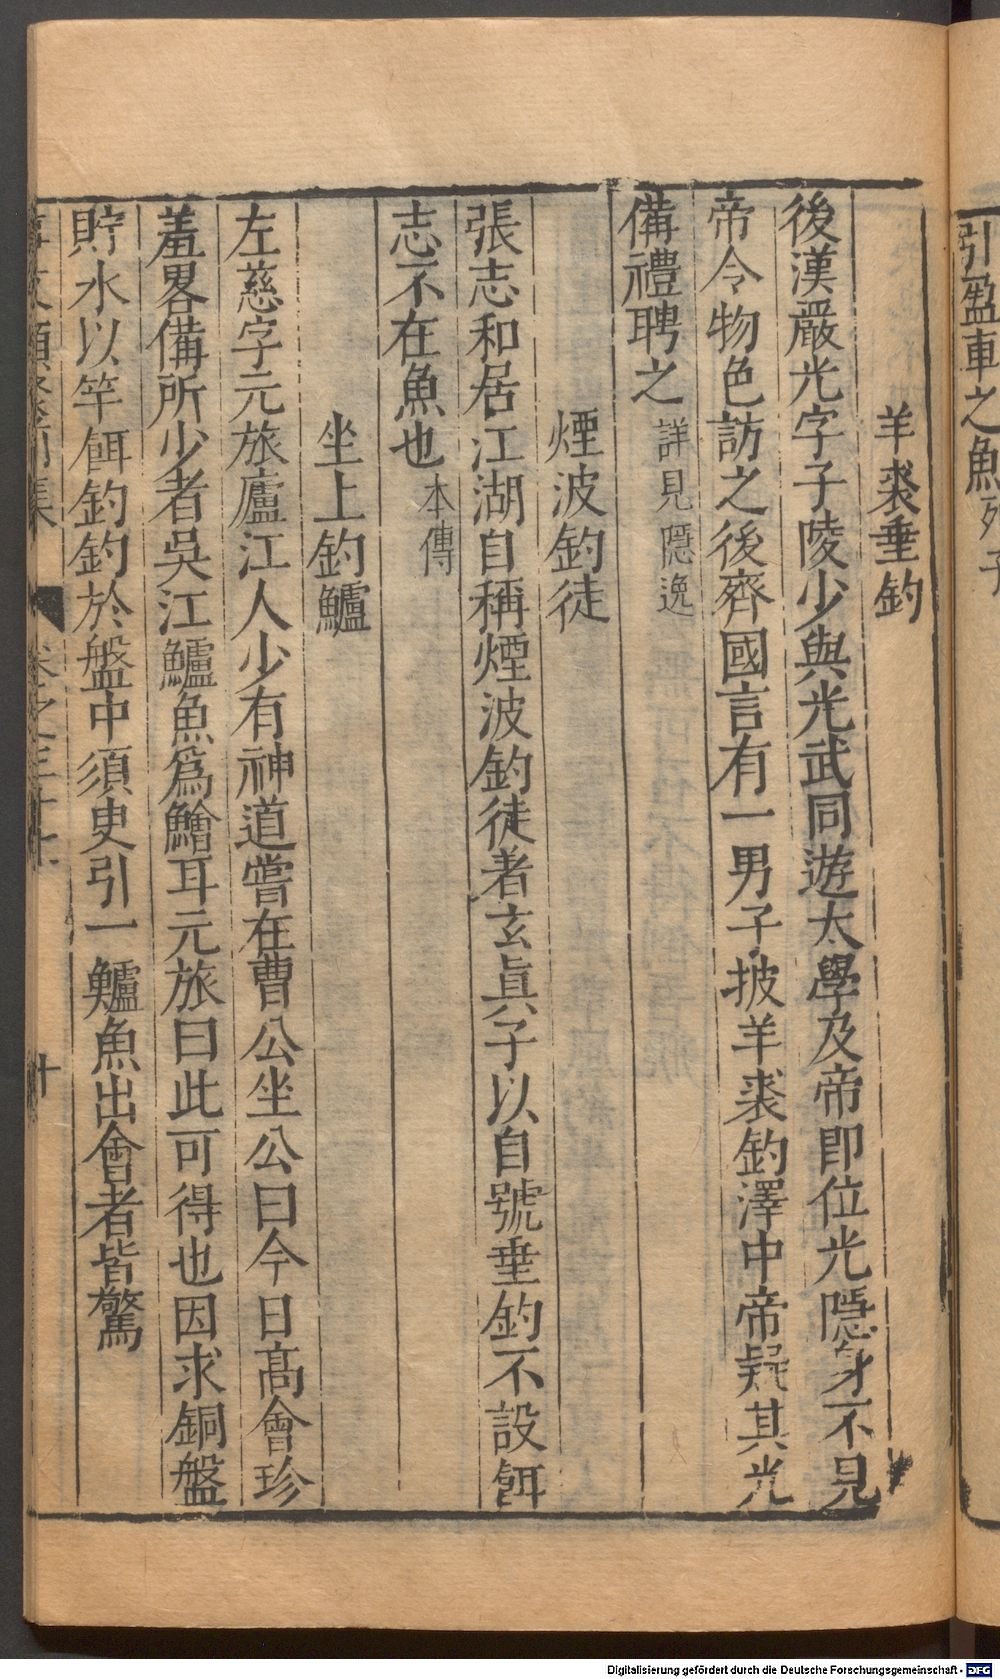 引盈車之魚列子
羊裘垂釣
後漢嚴光字子陵少與光武同遊太學及帝即位光隱身不見
帝令物色訪之後齊國言有一男子披羊裘釣澤中帝疑其光
備禮聘之詳見隱逸
煙波釣徒
張志和居江湖自稱煙波釣徒者玄眞子以自號垂釣不設餌
志不在魚也本傳
坐上釣鱸
左慈字元旅廬江人少有神道嘗在曹公坐公曰今日髙會珍
羞畧備所少者吳江鱸魚爲鱠耳元旅曰此可得也因求銅盤
貯水以竿餌釣釣於盤中須史引一鱸魚出會者皆驚
集
十
Digitalisierung gefördert durch die Deutsche Forschungsgemeinschaft - DFG